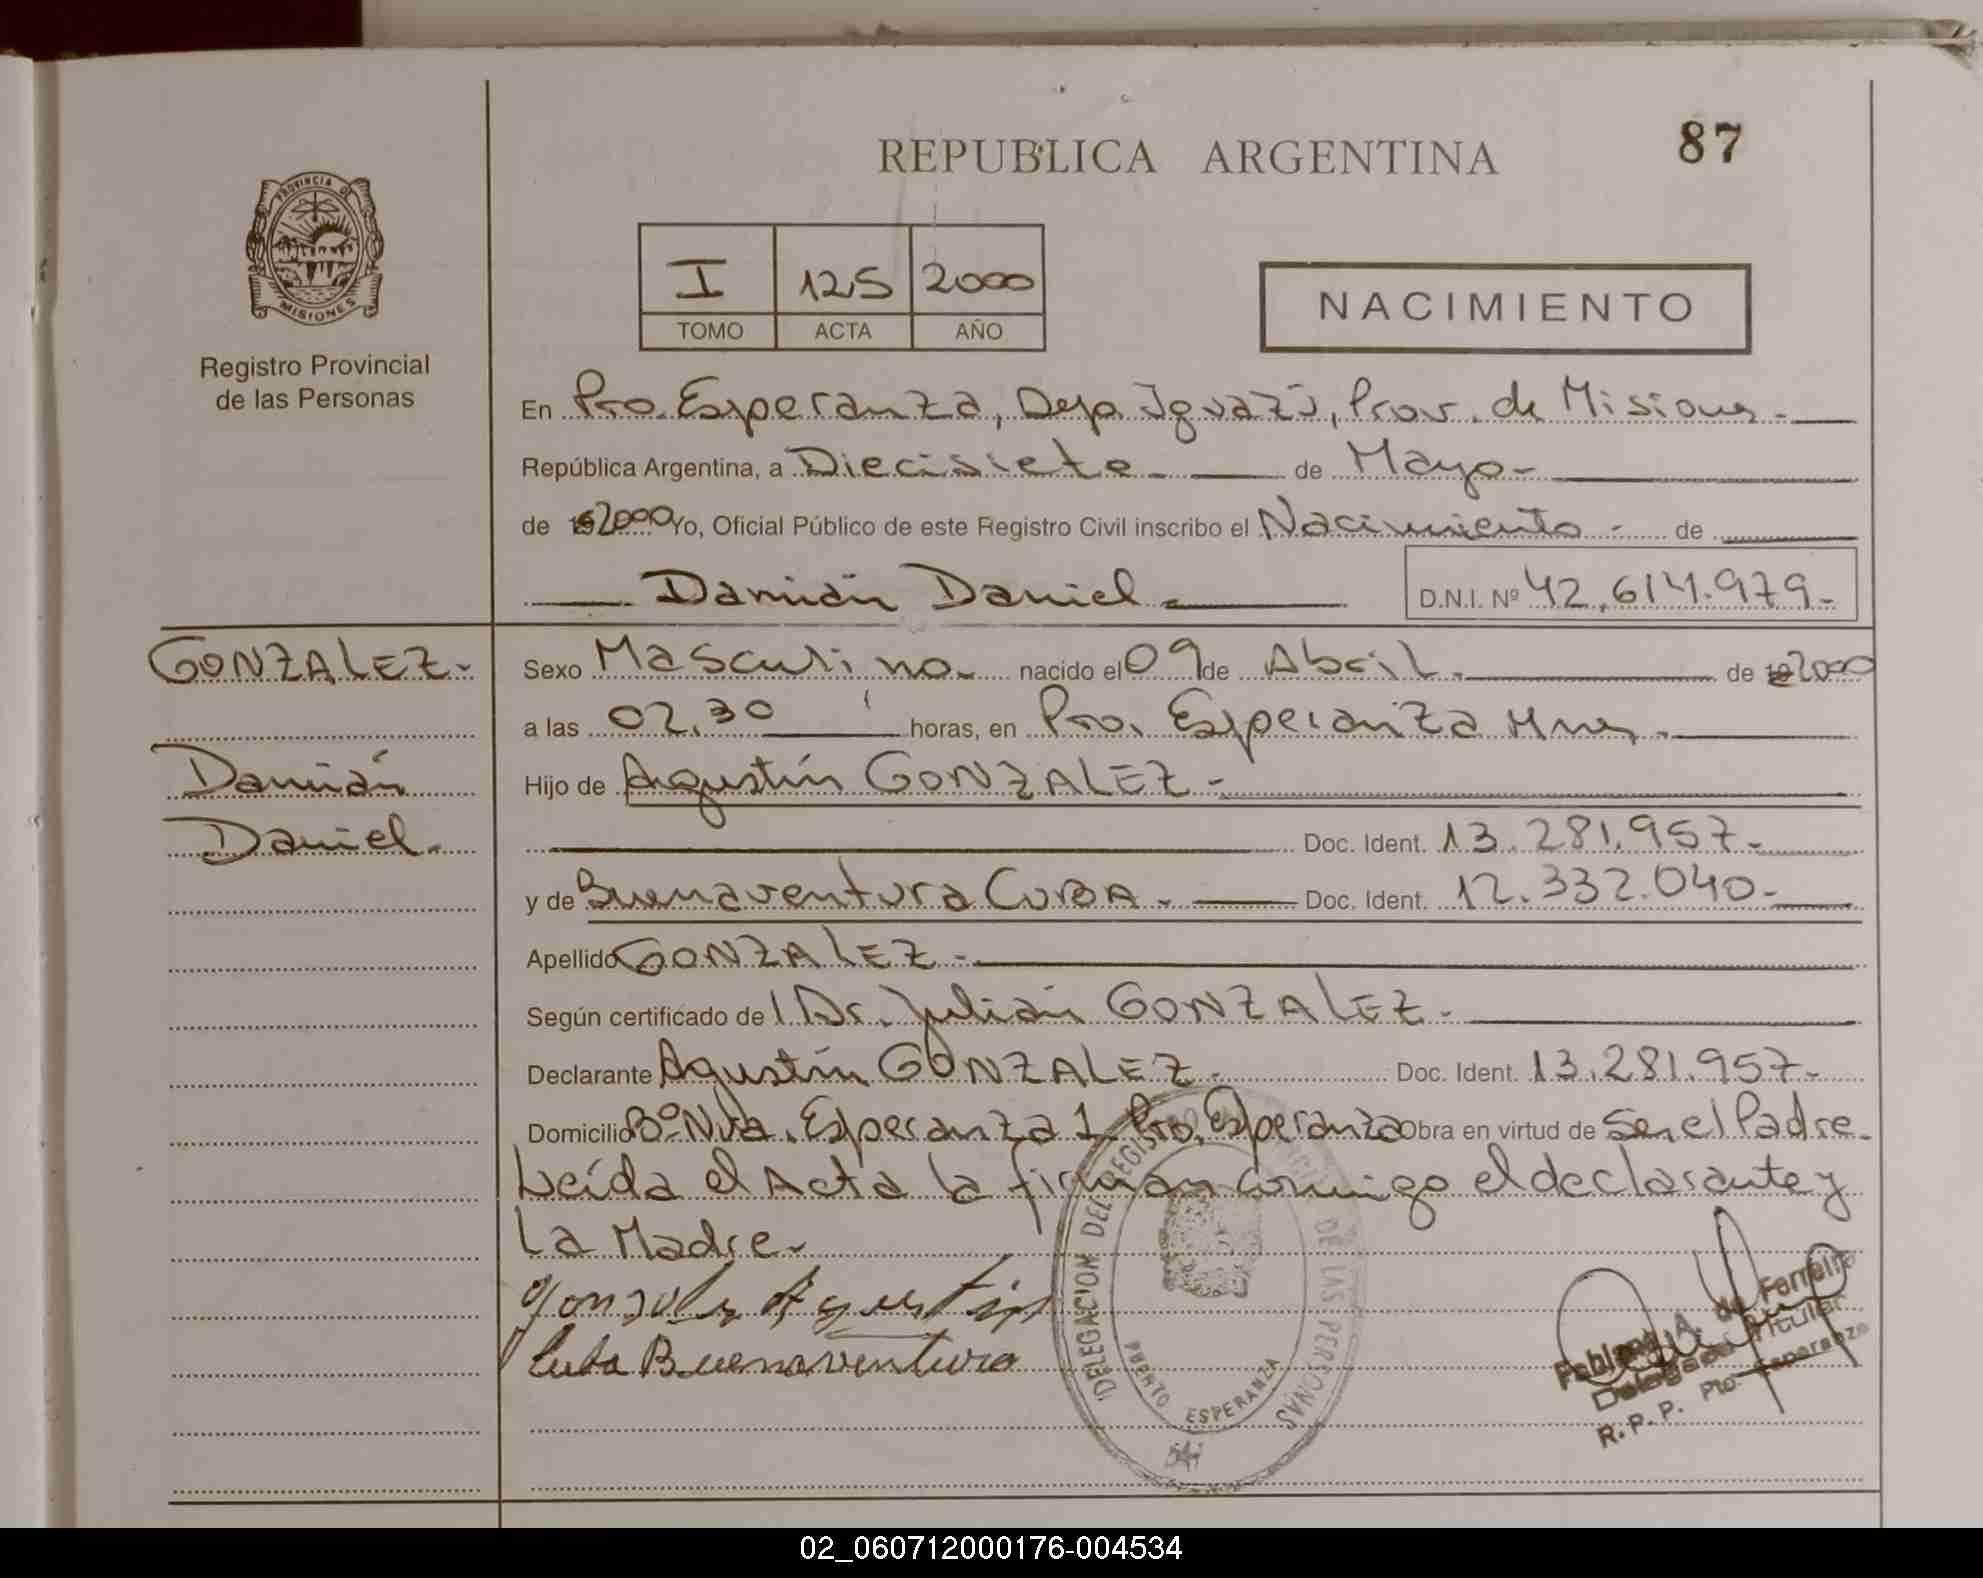 REPUBLICA ARGENTINA
87
PROVINCIA DE
MISIONES
Registro Provincial
de las Personas
I 125 2000
TOMO ACTA AÑO
NACIMIENTO
En Pto. Esperanza, Dep. Iguazú, Prov. de Misiones.-
República Argentina, a Diecisiete.- de Mayo-
de 2000 Yo, Oficial Público de este Registro Civil inscribo el Nacimiento.- de
Damián Daniel.-
D.N.I. Nº 42.614.979-
GONZALEZ-
Sexo Masculino.- nacido el 09 de Abril.- de 2000
a las 02.30 horas, en Pto. Esperanza Mnes.-
Damián
Hijo de Agustín GONZALEZ.-
Daniel.
Doc. Ident. 13.281.957.-
y de Buenaventura CUBA.- Doc. Ident. 12.332.040-
Apellido GONZALEZ.-
Según certificado de l Dr. Julián GONZALEZ.-
Declarante Agustín GONZALEZ.- Doc. Ident. 13.281.957-
Domicilio Bº Nva. Esperanza 1 Pto. Esperanza Obra en virtud de Ser el Padre.
Leída el Acta la firman conmigo el declarante y
La Madre.-
Gonzalez Agustin
Cuba Buenaventura
DELEGACION DEL REGISTRO DE LAS PERSONAS
PUERTO ESPERANZA
A. de Ferreira
Delegada Titular
R.P.P. Pto. Esperanza
02_060712000176-004534